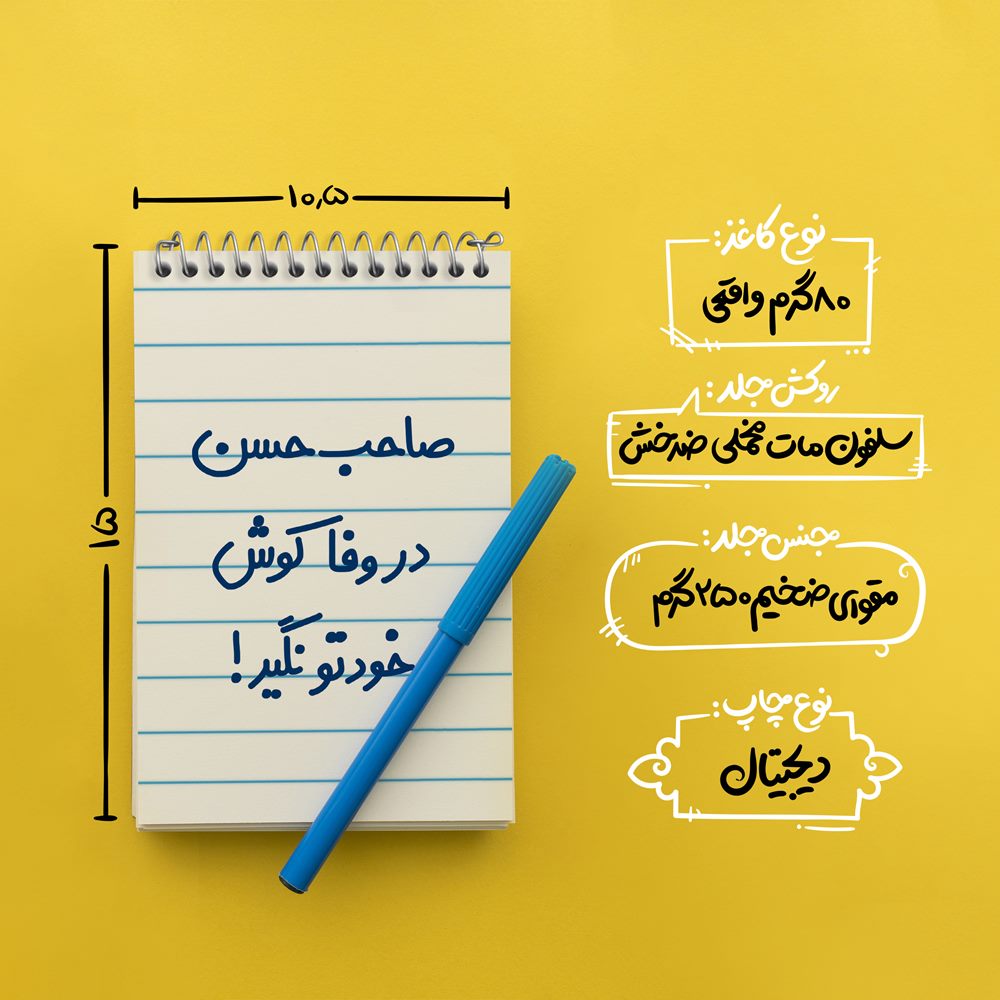 ۱۰٫۵
۱۵
صاحب حسن
در وفا کوش
خودتو نگیر!
نوع کاغذ:
۸۰گرم واقعی
روکش جلد:
سلفون مات مخملی ضدخش
جنس جلد:
مقوای ضخیم ۲۵۰گرم
نوع چاپ:
دیجیتال